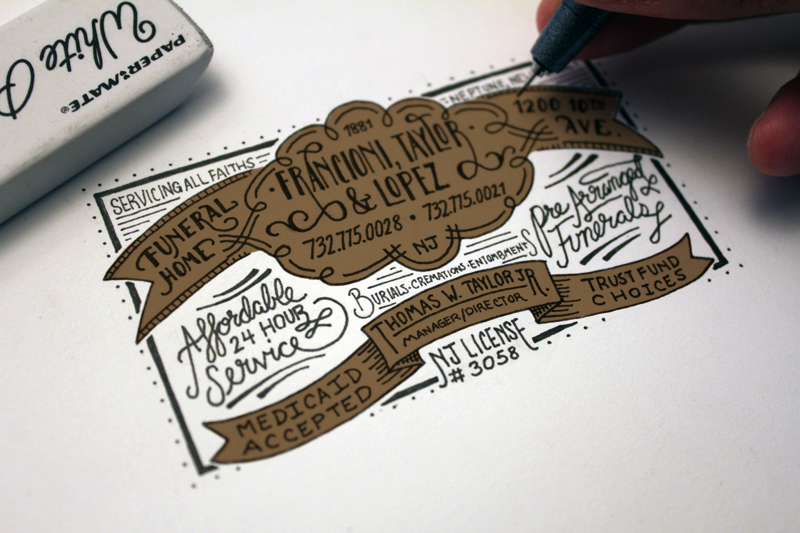 PAPER:MATE®
White P
NEPTUNE, NEW
1200 10TH
AVE.
SERVICING ALL FAITHS
1881
FRANCIONI, TAYLOR
& LOPEZ
732.775.0028 • 732.775.0021
NJ
FUNERAL
HOME
Pre Arranged
Funerals
Affordable
24 HOUR
Service
BURIALS-CREMATIONS-ENTOMBMENTS
THOMAS W. TAYLOR JR.
MANAGER/DIRECTOR
TRUST FUND
CHOICES
NJ LICENSE
# 3058
MEDICAID
ACCEPTED